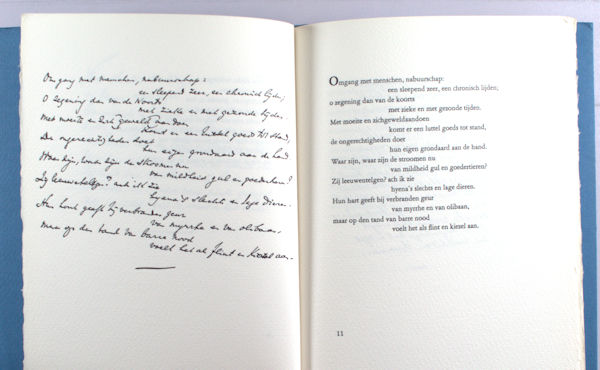 Omgang met menschen, nabuurschap:
een sleepend zeer, een chronisch lijden;
O zegening dan van de Koorts
met zieke en met gezonde tijden.
Met moeite en zich geweld aandoen
Komt er een luttel goeds tot stand,
De ongerechtigheden doet
hun eigen grondaard aan de hand.
Waar zijn, waar zijn de stroomen nu
van mildheid gul en goedertieren?
Zij leeuwentelgen? ach ik zie
hyena's slechts en lage dieren.
Hun hart geeft bij verbranden geur
van myrrhe en van olibaan,
maar op den tand van barre nood
voelt het als flint en Kiezel aan.
Omgang met menschen, nabuurschap:
een sleepend zeer, een chronisch lijden;
o zegening dan van de koorts
met zieke en met gezonde tijden.
Met moeite en zichgeweldsaandoen
komt er een luttel goeds tot stand,
de ongerechtigheden doet
hun eigen grondaard aan de hand.
Waar zijn, waar zijn de stroomen nu
van mildheid gul en goedertieren?
Zij leeuwentelgen? ach ik zie
hyena's slechts en lage dieren.
Hun hart geeft bij verbranden geur
van myrrhe en van olibaan,
maar op den tand van barre nood
voelt het al als flint en kiesel aan.
11